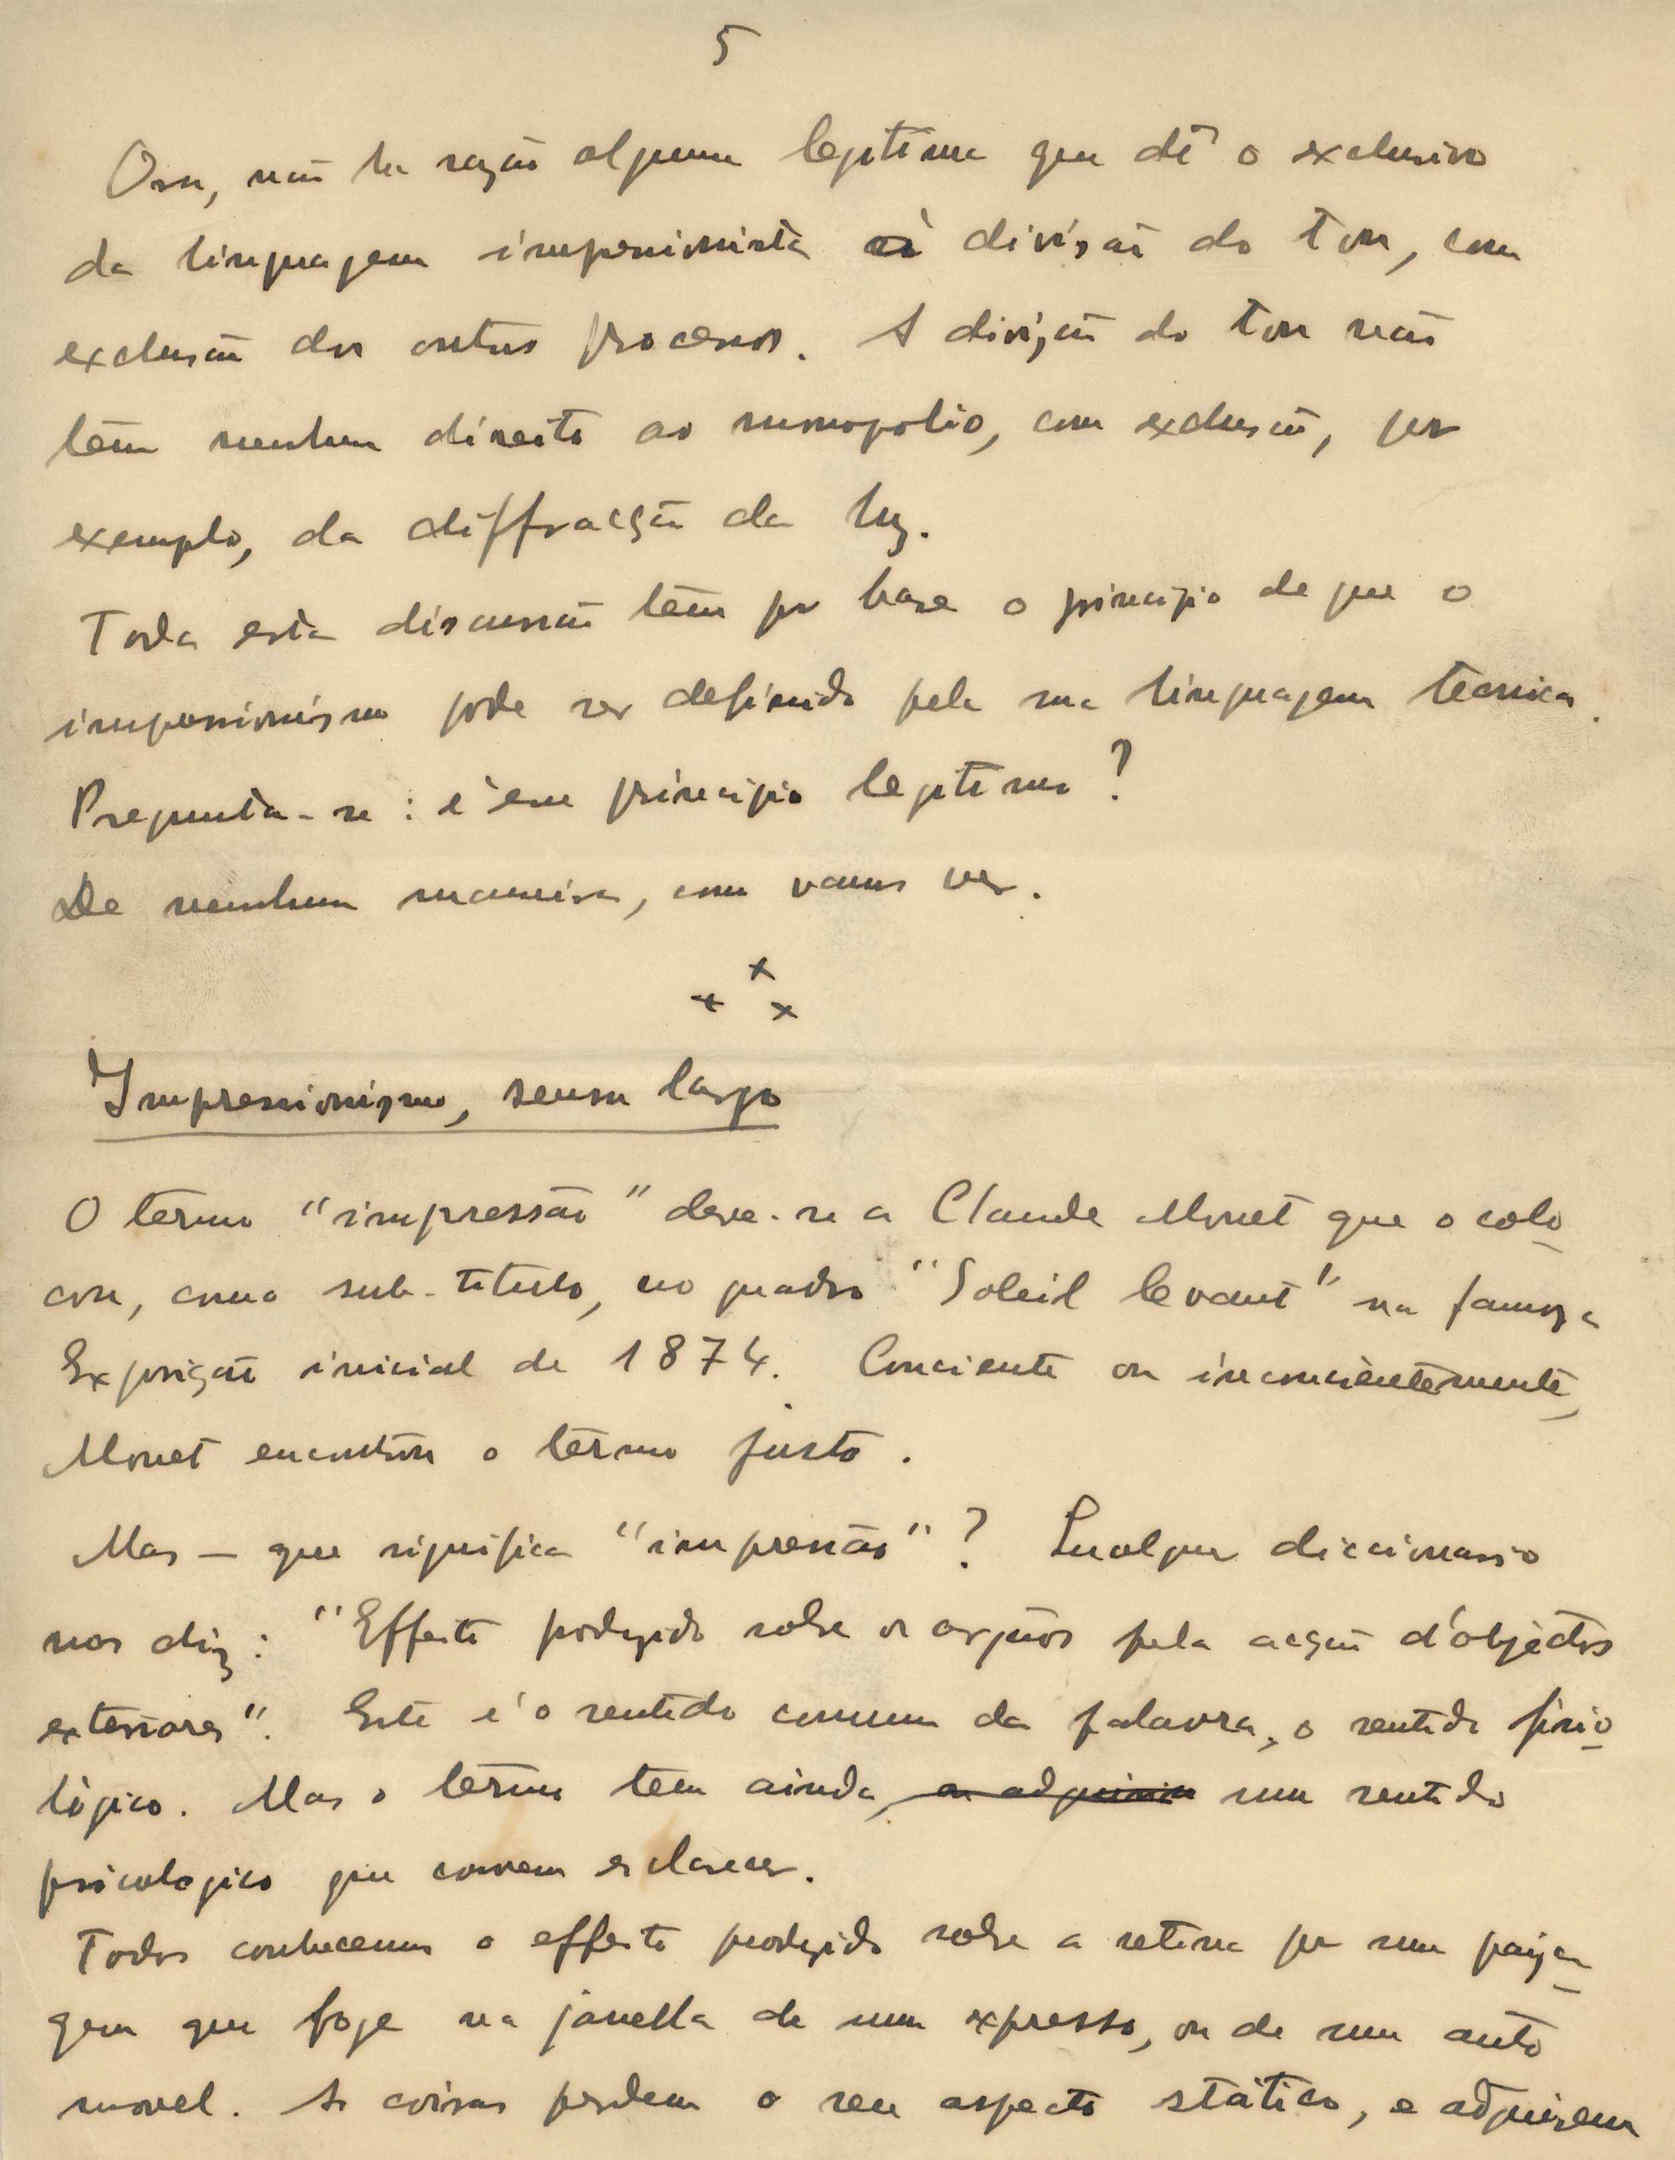 5
Ora, não ha razão alguma legitima que dê o exclusivo
da linguagem impressionista à divisão do tom, com
exclusão dos outros processos. A divisão do tom não
têm nenhum direito ao monopolio, com exclusão, por
exemplo, da diffracção da luz.
Toda esta discussão têm por base o principio de que o
impressionismo pode ser definido pela sua linguagem tecnica.
Pregunta-se: é esse principio legitimo?
De nenhuma maneira, como vamos ver.
x
x x
Impressionismo, sensu largo
O têrmo "impressão" deve-se a Claude Monet que o colo
cou, como sub-titulo, no quadro "Soleil levant" na famosa
Exposição inicial de 1874. Conciente ou inconcientemente,
Monet encontrou o têrmo justo.
Mas — que significa "impressão"? Qualquer diccionario
nos diz: "Effeito produzido sobre os orgãos pela acção d'objectos
exteriores". Este é o sentido comum da palavra, o sentido fisio
lógico. Mas o têrmo tem ainda, ou adquiriu um sentido
psicologico que convem esclarecer.
Todos conhecemos o effeito produzido sobre a retina por uma paiza
gem que foge na janella de um expresso, ou de um auto
movel. As coisas perdem o seu aspecto stático, e adquirem